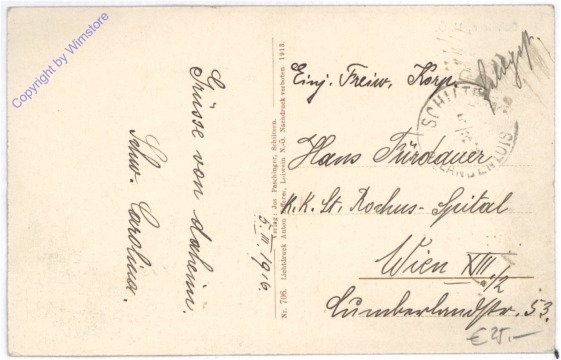 Copyright by Wimstore
Grüsse von daheim.
Schw. Carolina.
5. III 1916.
Verlag: Jos Paschinger, Schiltern.
Nr. 706. Lichtdruck Anton Loiwein N.-Ö. Nachdruck verboten 1913.
Feldpost
Einj. Freiw. Korp.
SCHILTERN
LANGENLOIS
Hans Fürdauer
K.K. St. Rochus-Spital
Wien XIII/2
Cumberlandstr. 53.
€ 25.-